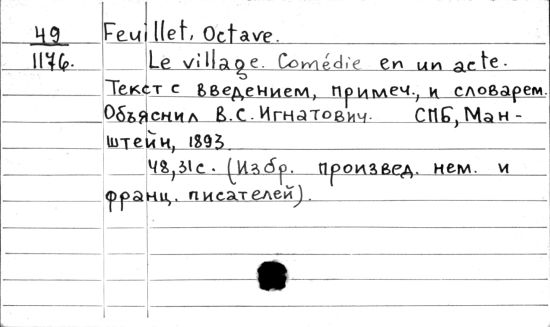 49 Feuillet, Octave.
1176. Le village. Comédie en un acte.
Текст с введением, примеч., и словарем.
Объяснил В.С. Игнатович. СПБ, Ман-
штейн, 1893
48, 31 с. (Избр. произвед. нем. и
франц. писателей).